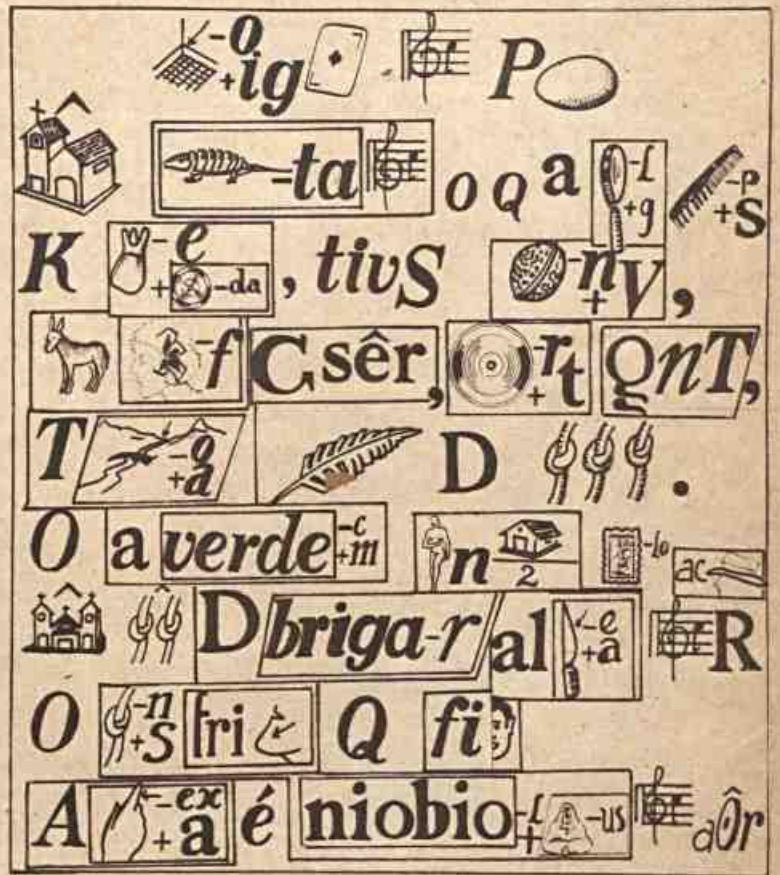 -o +ig P
-ta o Q a -l +g -p +s
K -e + -da , tivS -n + V ,
-f C sêr, -r + t gnT,
T -o +a D .
O a verde -c +m n 2 -lo ac
D briga-r al -e +a R
O -n +s fri Q fi
A -ex +a é niobio -l + -us aÔr